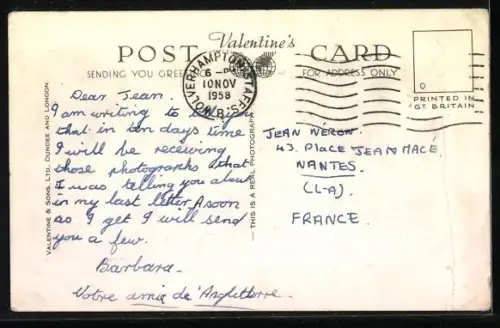 Valentine's
POST CARD
SENDING YOU GREE
FOR ADDRESS ONLY
WOLVERHAMPTON STAFFS.
6 - PM
10 NOV
1958
B
PRINTED IN
GT. BRITAIN
VALENTINE & SONS, LTD. DUNDEE AND LONDON
THIS IS A REAL PHOTOGRAPH
Dear Jean.
I am writing to tell you
that in ten days time
I will be receiving
those photographs that
I was telling you about
in my last letter. As soon
as I get I will send
you a few.
Barbara.
Votre amie de Angleterre.
JEAN NÉRON.
43. PLACE JEAN MACE,
NANTES.
(L-A).
FRANCE.